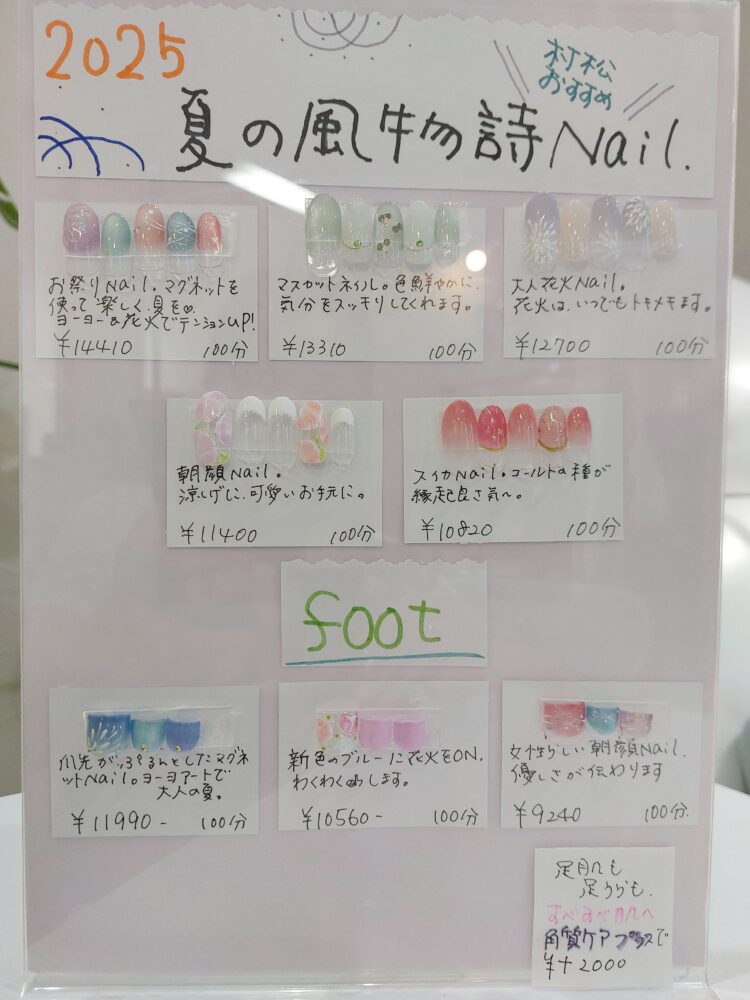 2025
村松
おすすめ
夏の風物詩Nail.
お祭りNail。マグネットを
使って楽しく、夏を。
ヨーヨー&花火でテンションUP!
¥14410 100分
マスカットネイル。色鮮やかに、
気分をスッキリしてくれます。
¥13310 100分
大人花火Nail。
花火は、いつでもトキメキます。
¥12700 100分
朝顔Nail。
涼しげに、可愛いお手元に。
¥11400 100分
スイカNail。ゴールドの種が
縁起良さ気〜。
¥10820 100分
foot
爪先がぷるんとしたマグネ
ットNail。ヨーヨーアートで
大人の夏。
¥11990- 100分
新色のブルーに花火をON.
わくわくします。
¥10560- 100分
女性らしい朝顔Nail.
優しさが伝わります
¥9240 100分.
足肌も
足うらも.
すべすべ肌へ
角質ケアプラスで
¥+2000